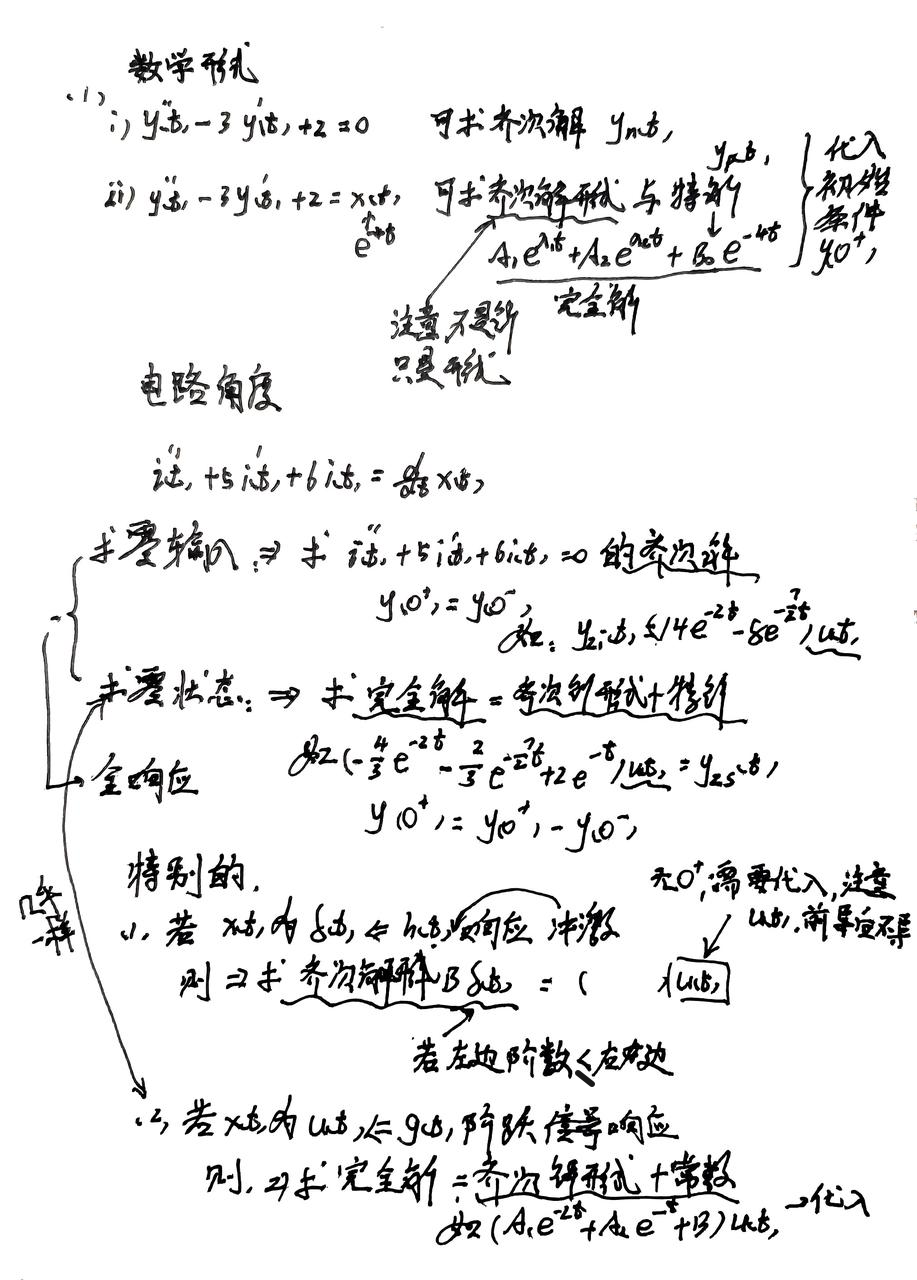 数学形式
(1)
i) y''(t) - 3y'(t) + 2 = 0 可求齐次解 yn(t)
ii) y''(t) - 3y'(t) + 2 = x(t) 可求齐次解形式与特解 yp(t)
e^-4t
A₁e^λ₁t + A₂e^λ₂t + B₀e^-4t
完全解
代入
初始
条件
y(0⁺)
注意不是解
只是形式
电路角度
i''(t) + 5i'(t) + 6i(t) = d/dt x(t)
求零输入: ⇒ 求 i''(t) + 5i'(t) + 6i(t) = 0 的齐次解
y(0⁺) = y(0⁻)
如: yzi(t) = (14e^-2t - 8e^-7/2t)u(t)
求零状态: ⇒ 求完全解 = 齐次解形式 + 特解
如 (-4/3 e^-2t - 2/3 e^-7/2t + 2e^-t)u(t) = yzs(t)
y(0⁺) = y(0⁺) - y(0⁻)
全响应
几乎
一样
特别的,
(1) 若 x(t) 为 δ(t) ⇐ h(t) 响应 冲激
无0⁺, 需要代入, 注意
u(t), 前导后不导
则 ⇒ 求 齐次解形式 Bδ(t) = ( )u(t)
若左边阶数 ≤ 右边
(2) 若 x(t) 为 u(t) ⇐ g(t) 阶跃信号响应
则, ⇒ 求完全解 = 齐次解形式 + 常数
如 (A₁e^-2t + A₂e^-t + B)u(t) → 代入